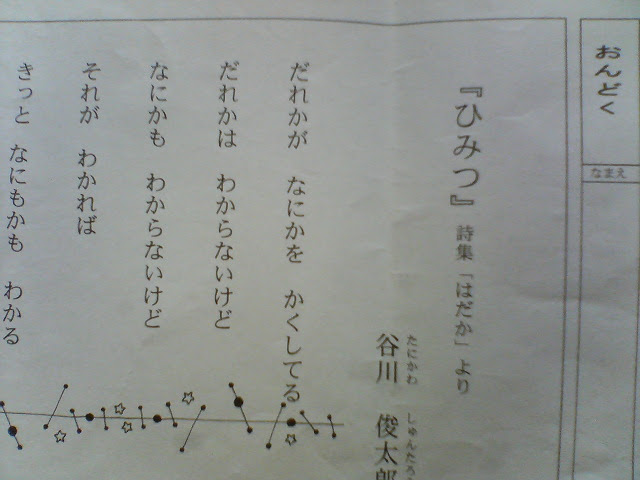 おんどく
なまえ
『ひみつ』 詩集「はだか」より
たにかわ しゅんたろ
谷川 俊太郎
だれかが なにかを かくしてる
だれかは わからないけど
なにかも わからないけど
それが わかれば
きっと なにもかも わかる